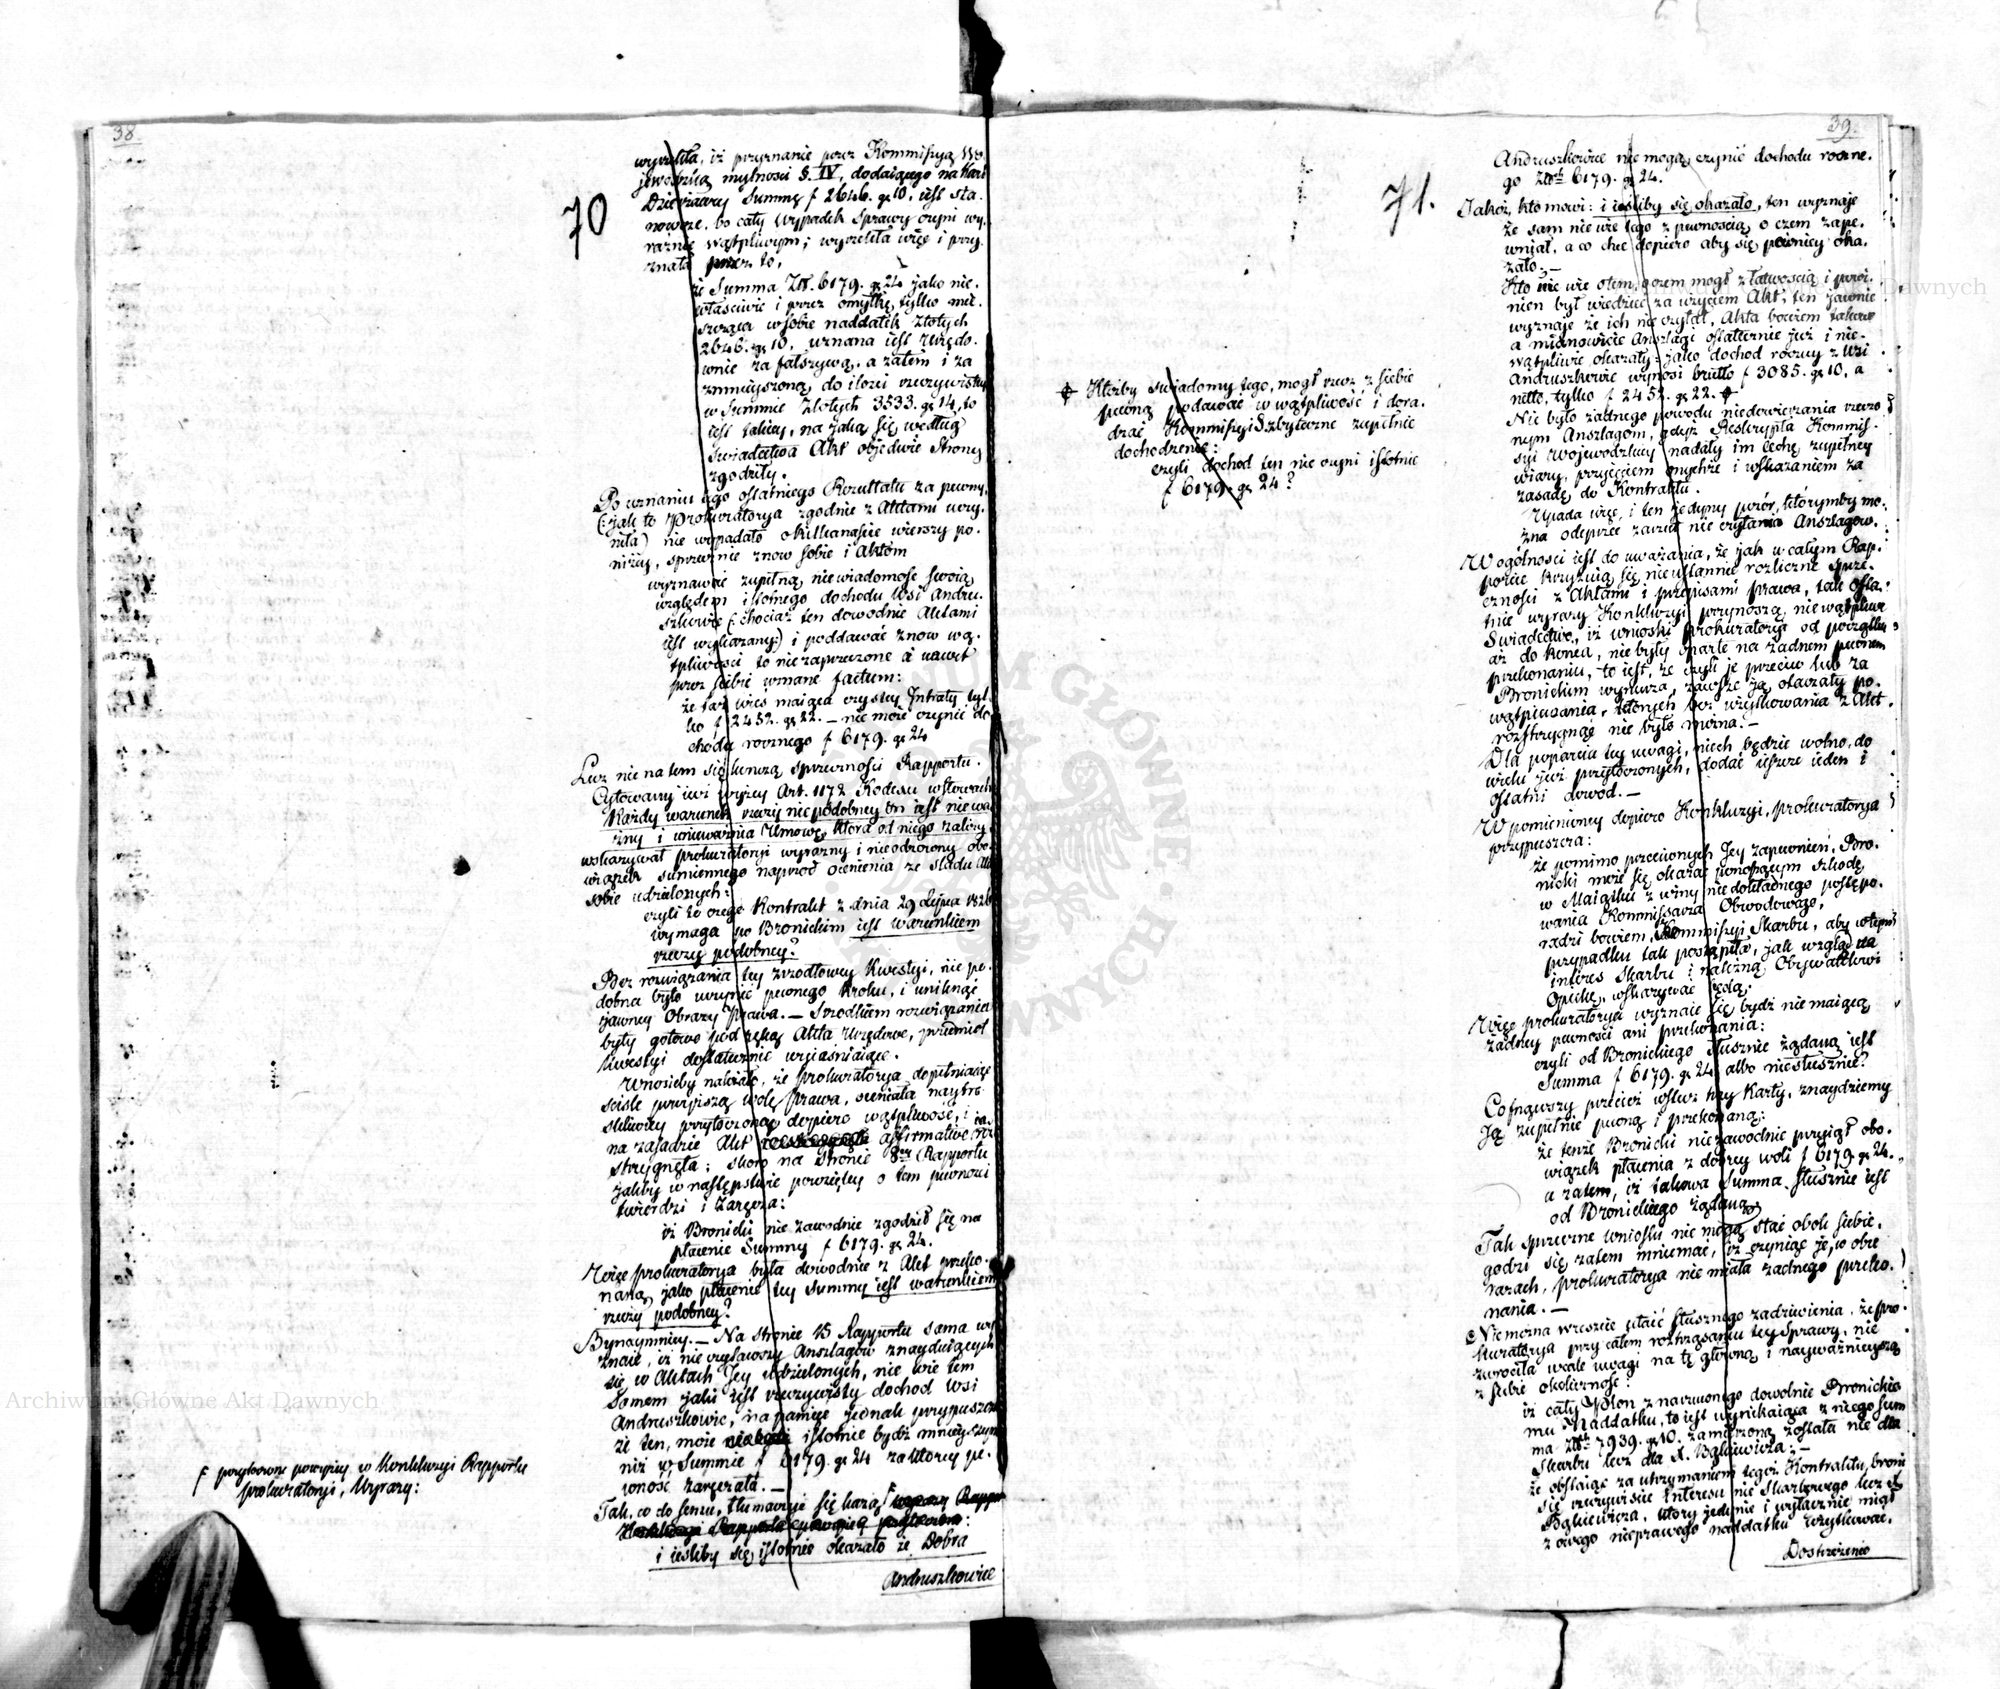 38
70
wyrzekła, iż przyznanie przez Kommissyą Wo-
jewodzką mylności §. IV, dodaiącego na Karb
Dzierżawy Summę f 2646. gr 10, iest sta-
nowcze, bo cały wypadek Sprawy czyni wy-
raźnie wątpliwym; wyrzekła więc i przy-
znała przez to,
że Summa Złt. 6179. gr 24 jako nie-
właściwie i przez omyłkę tylko mie-
szcząca w sobie naddatek Złotych
2646. gr 10, uznana iest Urzędo-
wnie za fałszywą, a zatem i za
zmnieyszoną do ilości rzeczywistey
w Summie Złotych 3533. gr 14, to
iest takiey, na jaką się według
Świadectwa Akt obiedwie Strony
zgodziły.
Po uznaniu tego ostatniego Rezultatu za pewny,
(: jak to Prokuratorya zgodnie z Aktami uczy-
niła) nie wypadało o kilkanaście wierszy po-
niżey, sprzecznie znow sobie i Aktom
wyznawać zupełną niewiadomość swoią
względem istotnego dochodu Wsi Andru-
szkowic (: chociaż ten dowodnie Aktami
iest wykazany:) i poddawać znow wą-
tpliwości to niezaprzeczone a nawet
przez siebie uznane factum:
że taż wieś maiąca czystey Intraty tyl-
ko f 2452. gr 22. – nie może czynić do-
chodu rocznego f 6179. gr 24
Lecz nie na tem się kończą sprzeczności Rapportu.
Cytowany iuż wyżey Art. 1172 Kodexu w słowach
Każdy warunek rzeczy niepodobney &c iest niewa-
żny i unieważnia Umowę, która od niego zależy
wskazywał Prokuratoryi wyraźny i nieodzowny obo-
wiązek sumiennego naprzod ocenienia ze składu Akt
sobie udzielonych:
czyli to czego Kontrakt z dnia 29 Lipca 1826
wymaga po Bronickim iest warunkiem
rzeczy podobney?
Bez rozwiązania tey zrzodłowey Kwestyi, nie po-
dobna było uczynić pewnego Kroku, i uniknąć
jawney Obrazy Prawa. – Srzodkiem rozwiązania
były gotowe pod ręką Akta Urzędowe, przedmiot
Kwestyi dostatecznie wyiaśniaiące.
Wnosićby należało, że Prokuratorya dopełniaiąc
ściśle powyższą wolę Prawa, oceniła naytro-
skliwiey przytoczoną dopiero wątpliwość, i
na zasadzie Akt affirmative roz-
strzygnęła; skoro na Stronie 8ey Rapportu
jakby w następstwie powziętey o tem pewności
twierdzi i zaręcza:
iż Bronicki niezawodnie zgodził się na
płacenie Summy f 6179. gr 24.
Więc Prokuratorya była dowodnie z Akt przeko-
naną, jako płacenie tey Summy iest warunkiem
rzeczy podobney?
Bynaymniey. – Na stronie 15 Rapportu sama wy-
znaie, iż nie czytawszy Anszlagów znayduiących
się w Aktach Jey udzielonych, nie wie tem
samem jaki iest rzeczywisty dochod Wsi
Andruszkowic, napomięc jednak przypuszcza
że ten, może istotnie bydź mnieyszym
niż w Summie f 6179. gr 24 za ktorey pe-
wność zaręczała. –
Tak, co do sensu, tłumaczyć się każą f
i iesliby się istotnie okazało że Dobra
Andruszkowice
f przytoczone powyżey w Konkluzyi Rapportu
Prokuratoryi, Wyrazy:
39.
71.
Andruszkowice nie mogą czynić dochodu roczne-
go Złot 6179. gr 24.
Jakoż, kto mowi: i iesliby się okazało, ten wyznaje
że sam nie wie tego z pewnością o czem zape-
wniał, a co chce dopiero aby się pewniey oka-
zało. –
Kto nie wie o tem, o czem mogł z łatwością i powi-
nien był wiedzieć za użyciem Akt, ten jawnie
wyznaje że ich nie czytał, Akta bowiem takowe
a mianowicie Anszlagi ostatecznie już i nie-
wątpliwie okazały: jako dochod roczny z Wsi
Andruszkowic wynosi brutto f 3085. gr 10, a
netto, tylko f 2452. gr 22.
Nie było żadnego powodu niedowierzania rzeczo-
nym Anszlagom, gdyż Reskrypta Kommis-
syi Wojewodzkiey nadały im cechę zupełney
wiary, przyięciem onychże i wskazaniem za
zasadę do Kontraktu.
Upada więc, i ten jedyny pozór, którymby mo-
żna odeprzeć zarzut nieczytania Anszlagow.
W ogólności iest do uważania, że jak w całym Rap-
porcie krzyżuią się nieustannie rozliczne sprze-
czności z Aktami i przepisami prawa, tak osta-
tnie wyrazy Konkluzyi przynoszą niewątpliwe
Świadectwo, iż wnioski Prokuratorya od początku
aż do Końca, nie były oparte na żadnem pewnem
przekonaniu, to iest, że czyli je przeciw lub za
Bronickim wynurza, zawsze ją otaczały po-
wątpiewania, których bez użytkowania z Akt
rozstrzygnąć nie było można. –
Dla poparcia tey uwagi, niech będzie wolno, do
wielu już przytoczonych, dodać ieszcze ieden i
ostatni dowod. –
W pomienioney dopiero Konkluzyi, Prokuratorya
przypuszcza:
że pomimo przeciwnych Jey zapewnień, Bro-
nicki może się okazać ponoszącym szkodę
w Maiątku z winy niedokładnego postępo-
wania Kommissarza Obwodowego,
radzi bowiem, Kommissyi Skarbu, aby w tym
przypadku tak postąpiła, jak wzgląd na
interes Skarbu i należną Obywatelowi
Opiekę, wskazywać będą.
Więc Prokuratorya wyznaie się bydź niemaiącą
żadney pewności ani przekonania:
czyli od Bronickiego słusznie żądaną iest
Summa f 6179. gr 24, albo niesłusznie?
Cofnąwszy przecież wstecz trzy Karty, znaydziemy
Ją zupełnie pewną i przekonaną:
że tenże Bronicki niezawodnie przyiął obo-
wiązek płacenia z dobrey woli f 6179. gr 24.
a zatem, iż takowa Summa słusznie iest
od Bronickiego żądaną
Tak sprzeczne wnioski nie mogą stać obok siebie,
godzi się zatem mniemać, iż czyniąc je, w obu
razach, Prokuratorya nie miała żadnego przeko-
nania. –
Niemożna wreszcie utaić słusznego zadziwienia, że Pro-
kuratorya przy całem roztrząsaniu tey Sprawy, nie
zwrociła wcale uwagi na tę główną i nayważnieyszą
z siebie okoliczność:
iż cały Plon z narzuconego dowolnie Bronickie-
mu Naddatku, to iest wynikaiąca z niego Sum-
ma Złot 7939. gr 10. zamierzoną została nie dla
Skarbu lecz dla X. Bąkiewicza; –
że obstaiąc za utrzymaniem tegoż Kontraktu, broni
się rzeczywiście Interesu nie Skarbowego lecz X.
Bąkiewicza, ktory jedynie i wyłącznie miał
z owego nieprawego naddatku użytkować.
Dostrzeżenie
Któżby świadomy tego, mogł rzecz z siebie
pewną podawać w wątpliwość i dora-
dzać Kommissyi zbyteczne zupełnie
dochodzenie:
czyli dochod ten nie czyni istotnie
f 6179. gr 24?
Archiwum Główne Akt Dawnych